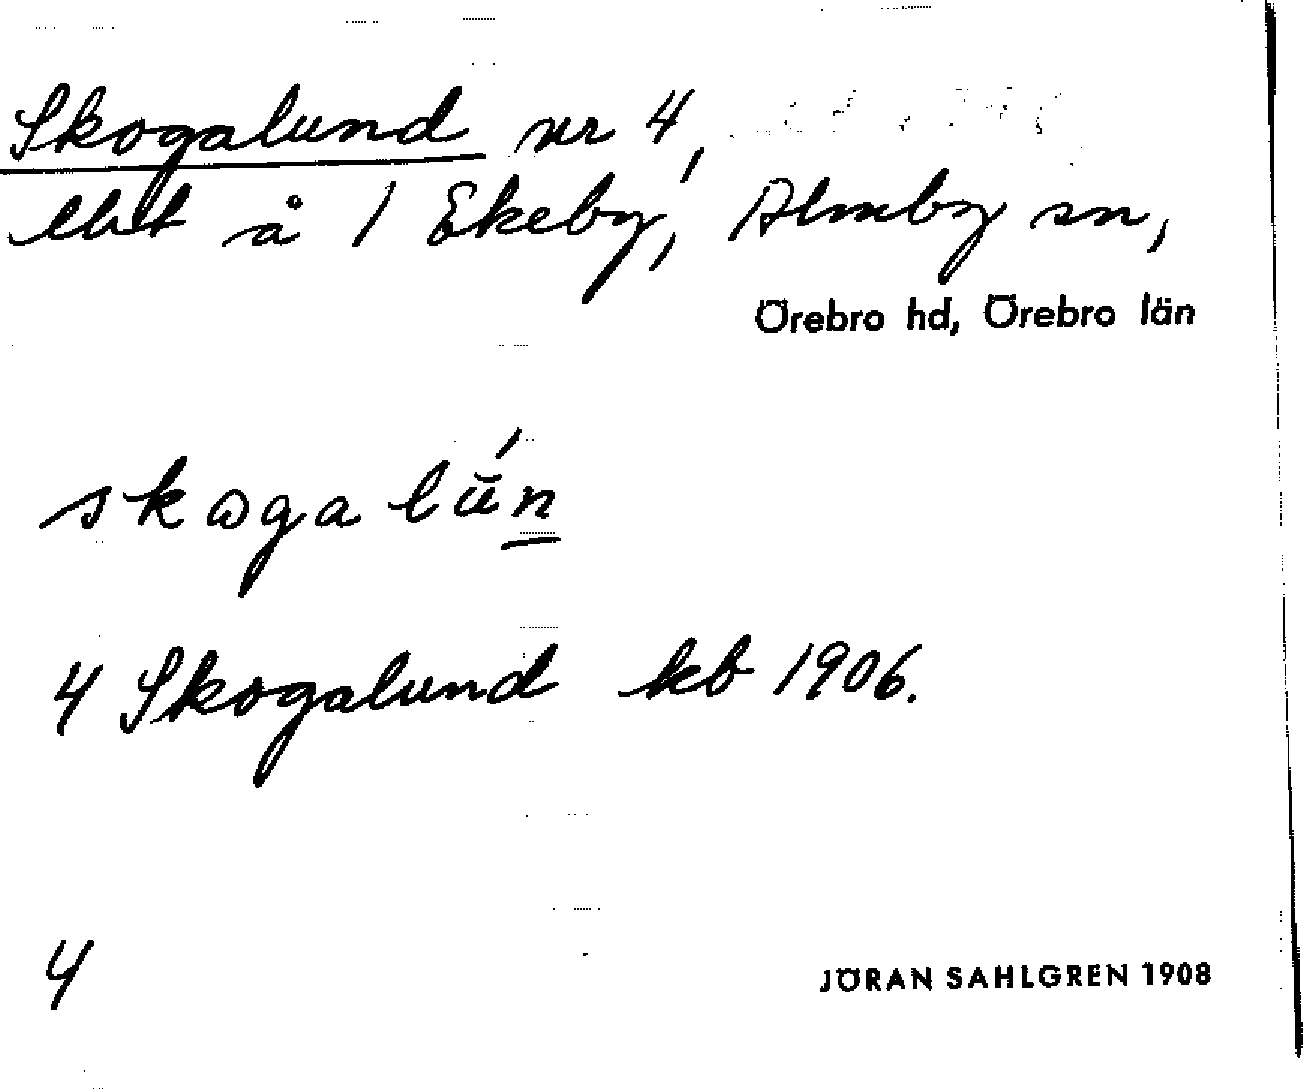 Skogalund nr 4,
lht å 1 Ekeby, Almby sn,
Örebro hd, Örebro län
skogalŭ́n
4 Skogalund kb 1906.
4
JÖRAN SAHLGREN 1908